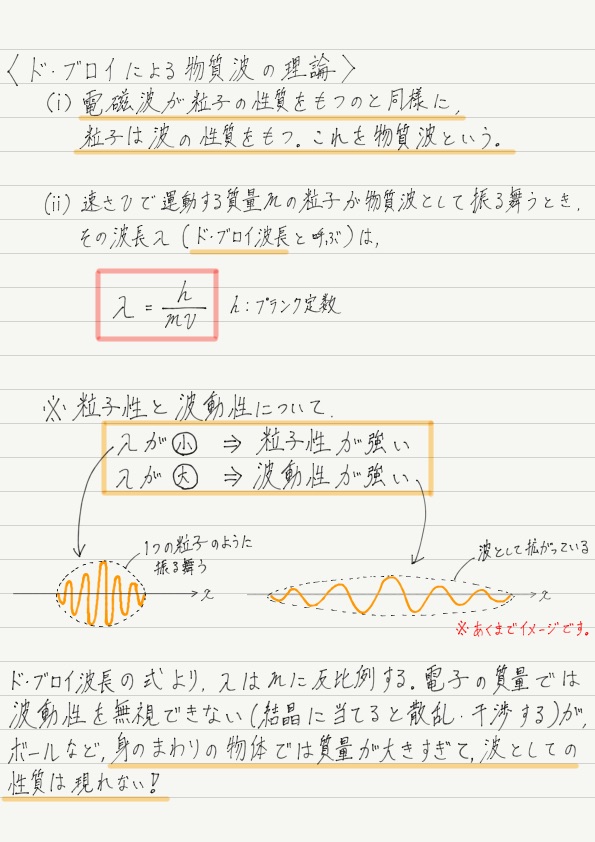 〈ド・ブロイによる物質波の理論〉
(i) 電磁波が粒子の性質をもつのと同様に,
粒子は波の性質をもつ。これを物質波という。
(ii) 速さvで運動する質量mの粒子が物質波として振る舞うとき,
その波長λ (ド・ブロイ波長と呼ぶ)は,
λ = h/mv h:プランク定数
※粒子性と波動性について.
λが小 ⇒ 粒子性が強い
λが大 ⇒ 波動性が強い
1つの粒子のように
振る舞う
x
波として拡がっている
x
※あくまでイメージです。
ド・ブロイ波長の式より, λはmに反比例する。電子の質量では
波動性を無視できない(結晶に当てると散乱・干渉する)が,
ボールなど, 身のまわりの物体では質量が大きすぎて, 波としての
性質は現れない!